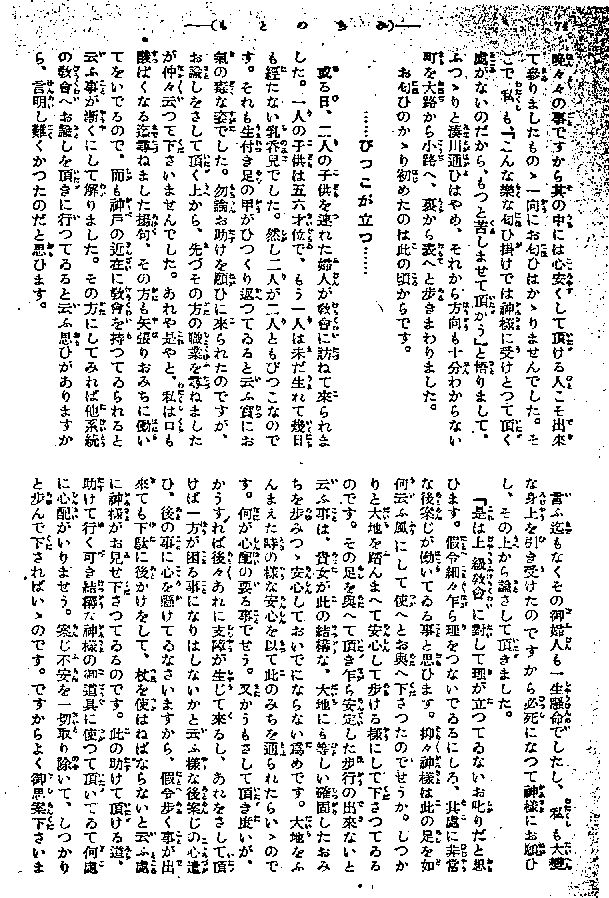 晩々々の事ですから其の中には心安くして頂ける人こそ出來
て參りましたものゝ一向にお匂ひはかゝりませんでした。そ
こで、私も『こんな樂な匂ひ掛けでは神樣に受けとつて頂く
處がないのだから、もつと苦しませて頂かう』と悟りまして、
ふつゝりと湊川通ひはやめ、それから方向も十分わからない
町を大路から小路へ、裏から表へと歩きまわりました。
お匂ひのかゝり初めたのは此の頃からです。
……びつこが立つ……
或る日、二人の子供を連れた婦人が敎會に訪ねて來られま
した。一人の子供は五六才位で、もう一人は未だ生れて幾日
も經たない乳呑兒でした。然し二人が二人ともびつこなので
す。それも生付き足の甲がひつくり返つてゐると云ふ實にお
氣の毒な姿でした。勿論お助けを願ひに來られたのですが、
お諭しをさして頂く上から、先づその方の職業を尋ねました
が仲々云つて下さいませんでした。あれや是やと、私は口も
酸ぱくなる迄尋ねました揚句、その方も矢張りおみちに働い
てをいでるので、而も神戸の近在に敎會を持つてゐられると
云ふ事が漸くにして解りました。その方にしてみれば他系統
の敎會へお諭しを頂きに行つてゐると云ふ思ひがありますか
ら、言明し難くかつたのだと思ひます。
言ふ迄もなくその御婦人も一生懸命でしたし、私も大變
な身上を引き受けたのですから必死になつて神樣にお願ひ
し、その上から諭さして頂きました。
『是は上級敎會に對して理が立つてゐないお叱りだと思
ひます。假令細々乍ら理をつないでゐるにしろ、其處に非常
な後案じが働いてゐる事と思ひます。抑々神樣は此の足を如
何云ふ風にして使へとお與へ下さつたのでせうか。しつか
りと大地を踏んまへて安心して歩ける樣にして下さつてゐる
のです。その足を與へて頂き乍ら安定した歩行の出來ないと
云ふ事は、貴女が此の結構な、大地にも等しい確固したおみ
ちを歩みつゝ安心しておいでにならない爲めです。大地をふ
んまえた時の樣な安心を以て此のみちを通られたらいゝので
す。何が心配の要る事でせう。又かうもさして頂き度いが、
かうすれば後々あれに支障が生じて來るし、あれをさして頂
けば一方が困る事になりはしないかと云ふ樣な後案じの心遣
ひ、後の事に心を懸けてゐなさいますから、假令歩く事が出
來ても下駄に後かけをして、杖を使はねばならないと云ふ處
に神樣がお見せ下さつてゐるのです。此の助けて頂ける道、
助けて行く可き結構な神樣の御道具に使つて頂いてゐて何處
に心配がいりませう。案じ不安を一切取り除いて、しつかり
と歩んで下さればいゝのです。ですからよく御思案下さいま